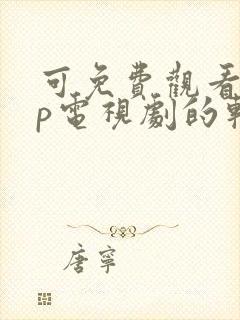 可免費觀看
p電視劇的軟
唐寧